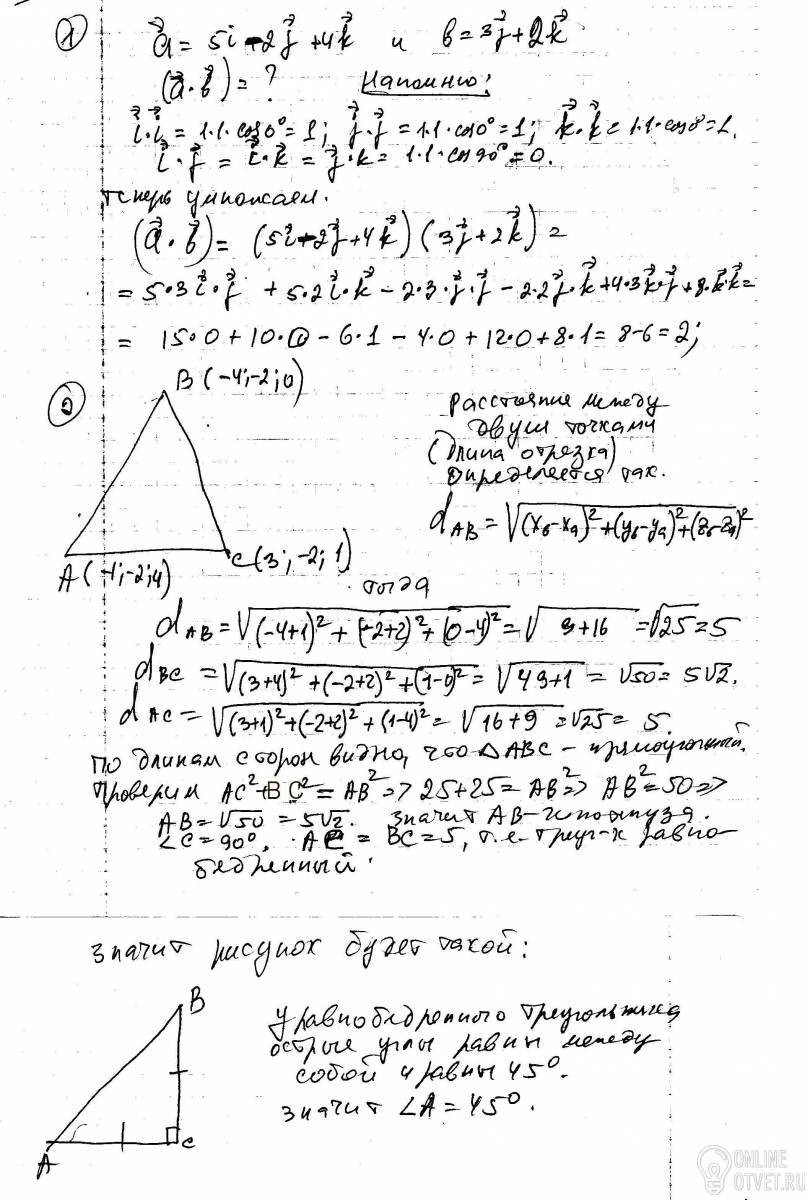 1) a⃗ = 5i⃗ - 2j⃗ + 4k⃗ и b = 3j⃗ + 2k⃗
(a⃗·b⃗) = ? Напомню:
i⃗·i⃗ = 1·1·cos0° = 1; j⃗·j⃗ = 1·1·cos0° = 1; k⃗·k⃗ = 1·1·cos0° = 1.
i⃗·j⃗ = i⃗·k⃗ = j⃗·k⃗ = 1·1·cos90° = 0.
теперь умножаем.
(a⃗·b⃗) = (5i⃗ - 2j⃗ + 4k⃗)(3j⃗ + 2k⃗) =
= 5·3i⃗·j⃗ + 5·2i⃗·k⃗ - 2·3·j⃗·j⃗ - 2·2j⃗·k⃗ + 4·3k⃗·j⃗ + 8·k⃗·k⃗ =
= 15·0 + 10·0 - 6·1 - 4·0 + 12·0 + 8·1 = 8 - 6 = 2;
2)
B (-4; -2; 0)
A (-1; -2; 4)
C (3; -2; 1)
Расстояние между
двумя точками
(длина отрезка)
определяется так.
d_AB = √((x_b - x_a)² + (y_b - y_a)² + (z_b - z_a)²)
тогда
d_AB = √((-4+1)² + (-2+2)² + (0-4)²) = √(9+16) = √25 = 5
d_BC = √((3+4)² + (-2+2)² + (1-0)²) = √(49+1) = √50 = 5√2.
d_AC = √((3+1)² + (-2+2)² + (1-4)²) = √(16+9) = √25 = 5.
По длинам сторон видно, что △ABC - прямоугольный.
Проверим AC² + BC² = AB² => 25+25 = AB² => AB² = 50 =>
AB = √50 = 5√2. значит AB - гипотенуза.
∠C = 90°. AC = BC = 5, т.е. треуг-к равно-
бедренный.
значит рисунок будет такой:
B
A
C
У равнобедренного треугольника
острые углы равны между
собой и равны 45°.
значит ∠A = 45°.
ONLINE
OTVET.RU